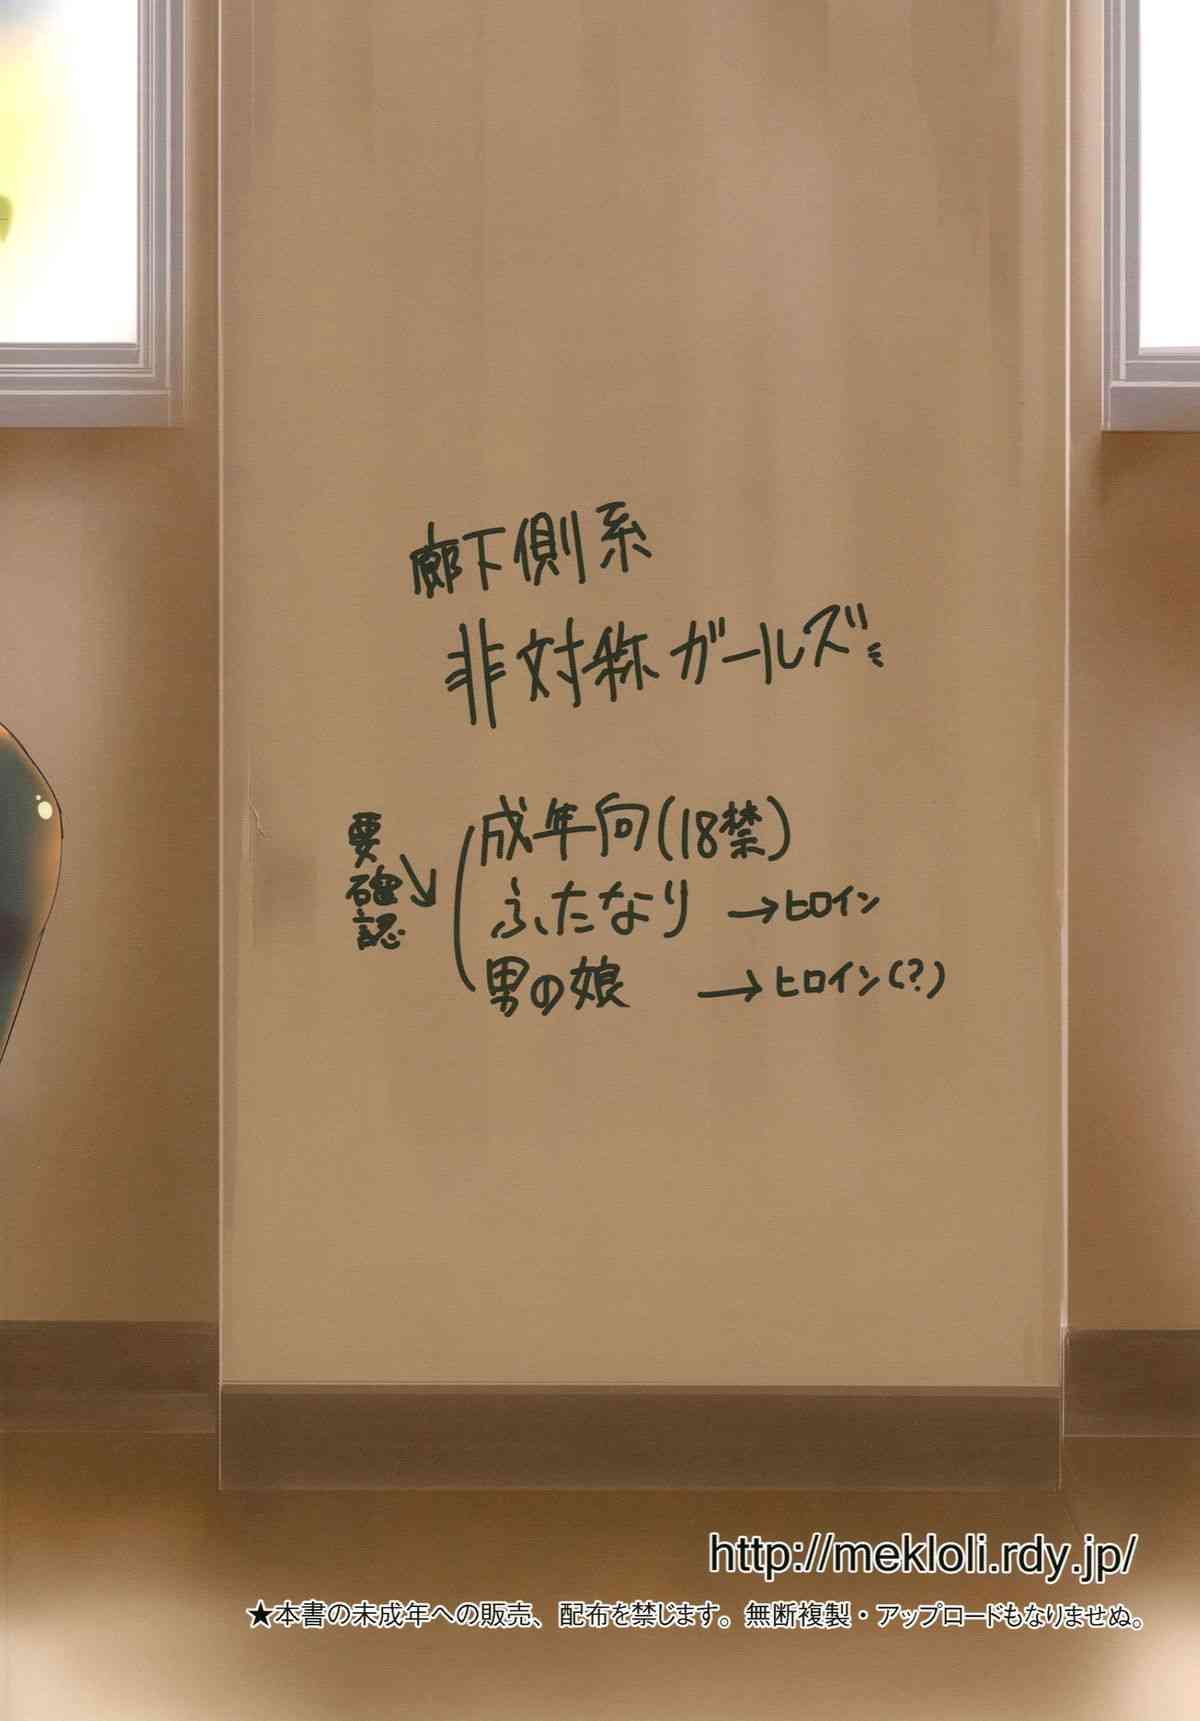 廊下側系
非対称ガールズ
要確認
成年向(18禁)
ふたなり → ヒロイン
男の娘 → ヒロイン(?)
http://mekloli.rdy.jp/
★本書の未成年への販売、配布を禁じます。無断複製・アップロードもなりませぬ。